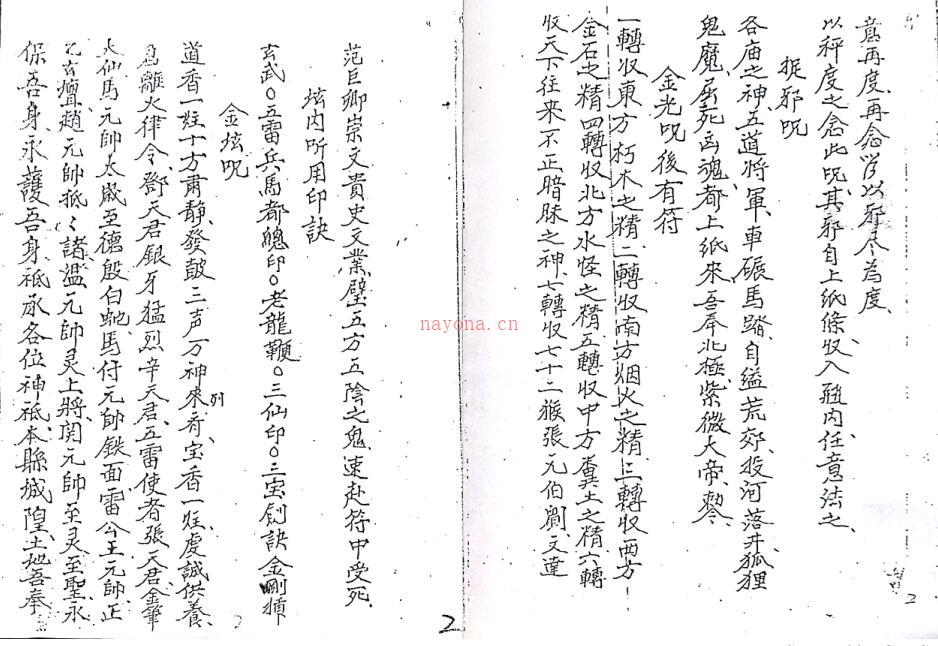 意再度再念咒以邪尽為度
以秤度之念此咒其邪自上纸條收入瓶内任意法之
捉邪咒
各庙之神五道将軍車碾馬踏自缢荒郊投河落井狐狸
鬼魔屈死凶魂都上纸來吾奉北極紫微大帝勑
金光咒後有符
一轉收東方朽木之精二轉收南方烟火之精三轉收西方
金石之精四轉收北方水怪之精五轉收中方糞土之精六轉
收天下往来不正暗昧之神七轉收七十二猴張元伯劉文達
2
范巨卿崇文貴史文業璧五方五陰之鬼速赴符中受死
坛内所用印訣
玄武〇五雷兵馬都總印〇老龍鞭〇三仙印〇三宝劍訣金剛
金坛咒
道香一炷十方肅静發鼓三声万神來列宝香一炷虔誠供養
离火律令鄧天君銀牙猛烈辛天君五雷使者張天君金筆
大仙馬元帥太歲至德殷白蛇馬付元帥鉄面雷公王元帥正
乙玄壇趙元帥抵〻諸温元帥灵上將関元帥至灵至聖永
保吾身永護吾身祗承各位神祗本縣城隍土地吾奉
2
nayona.cn